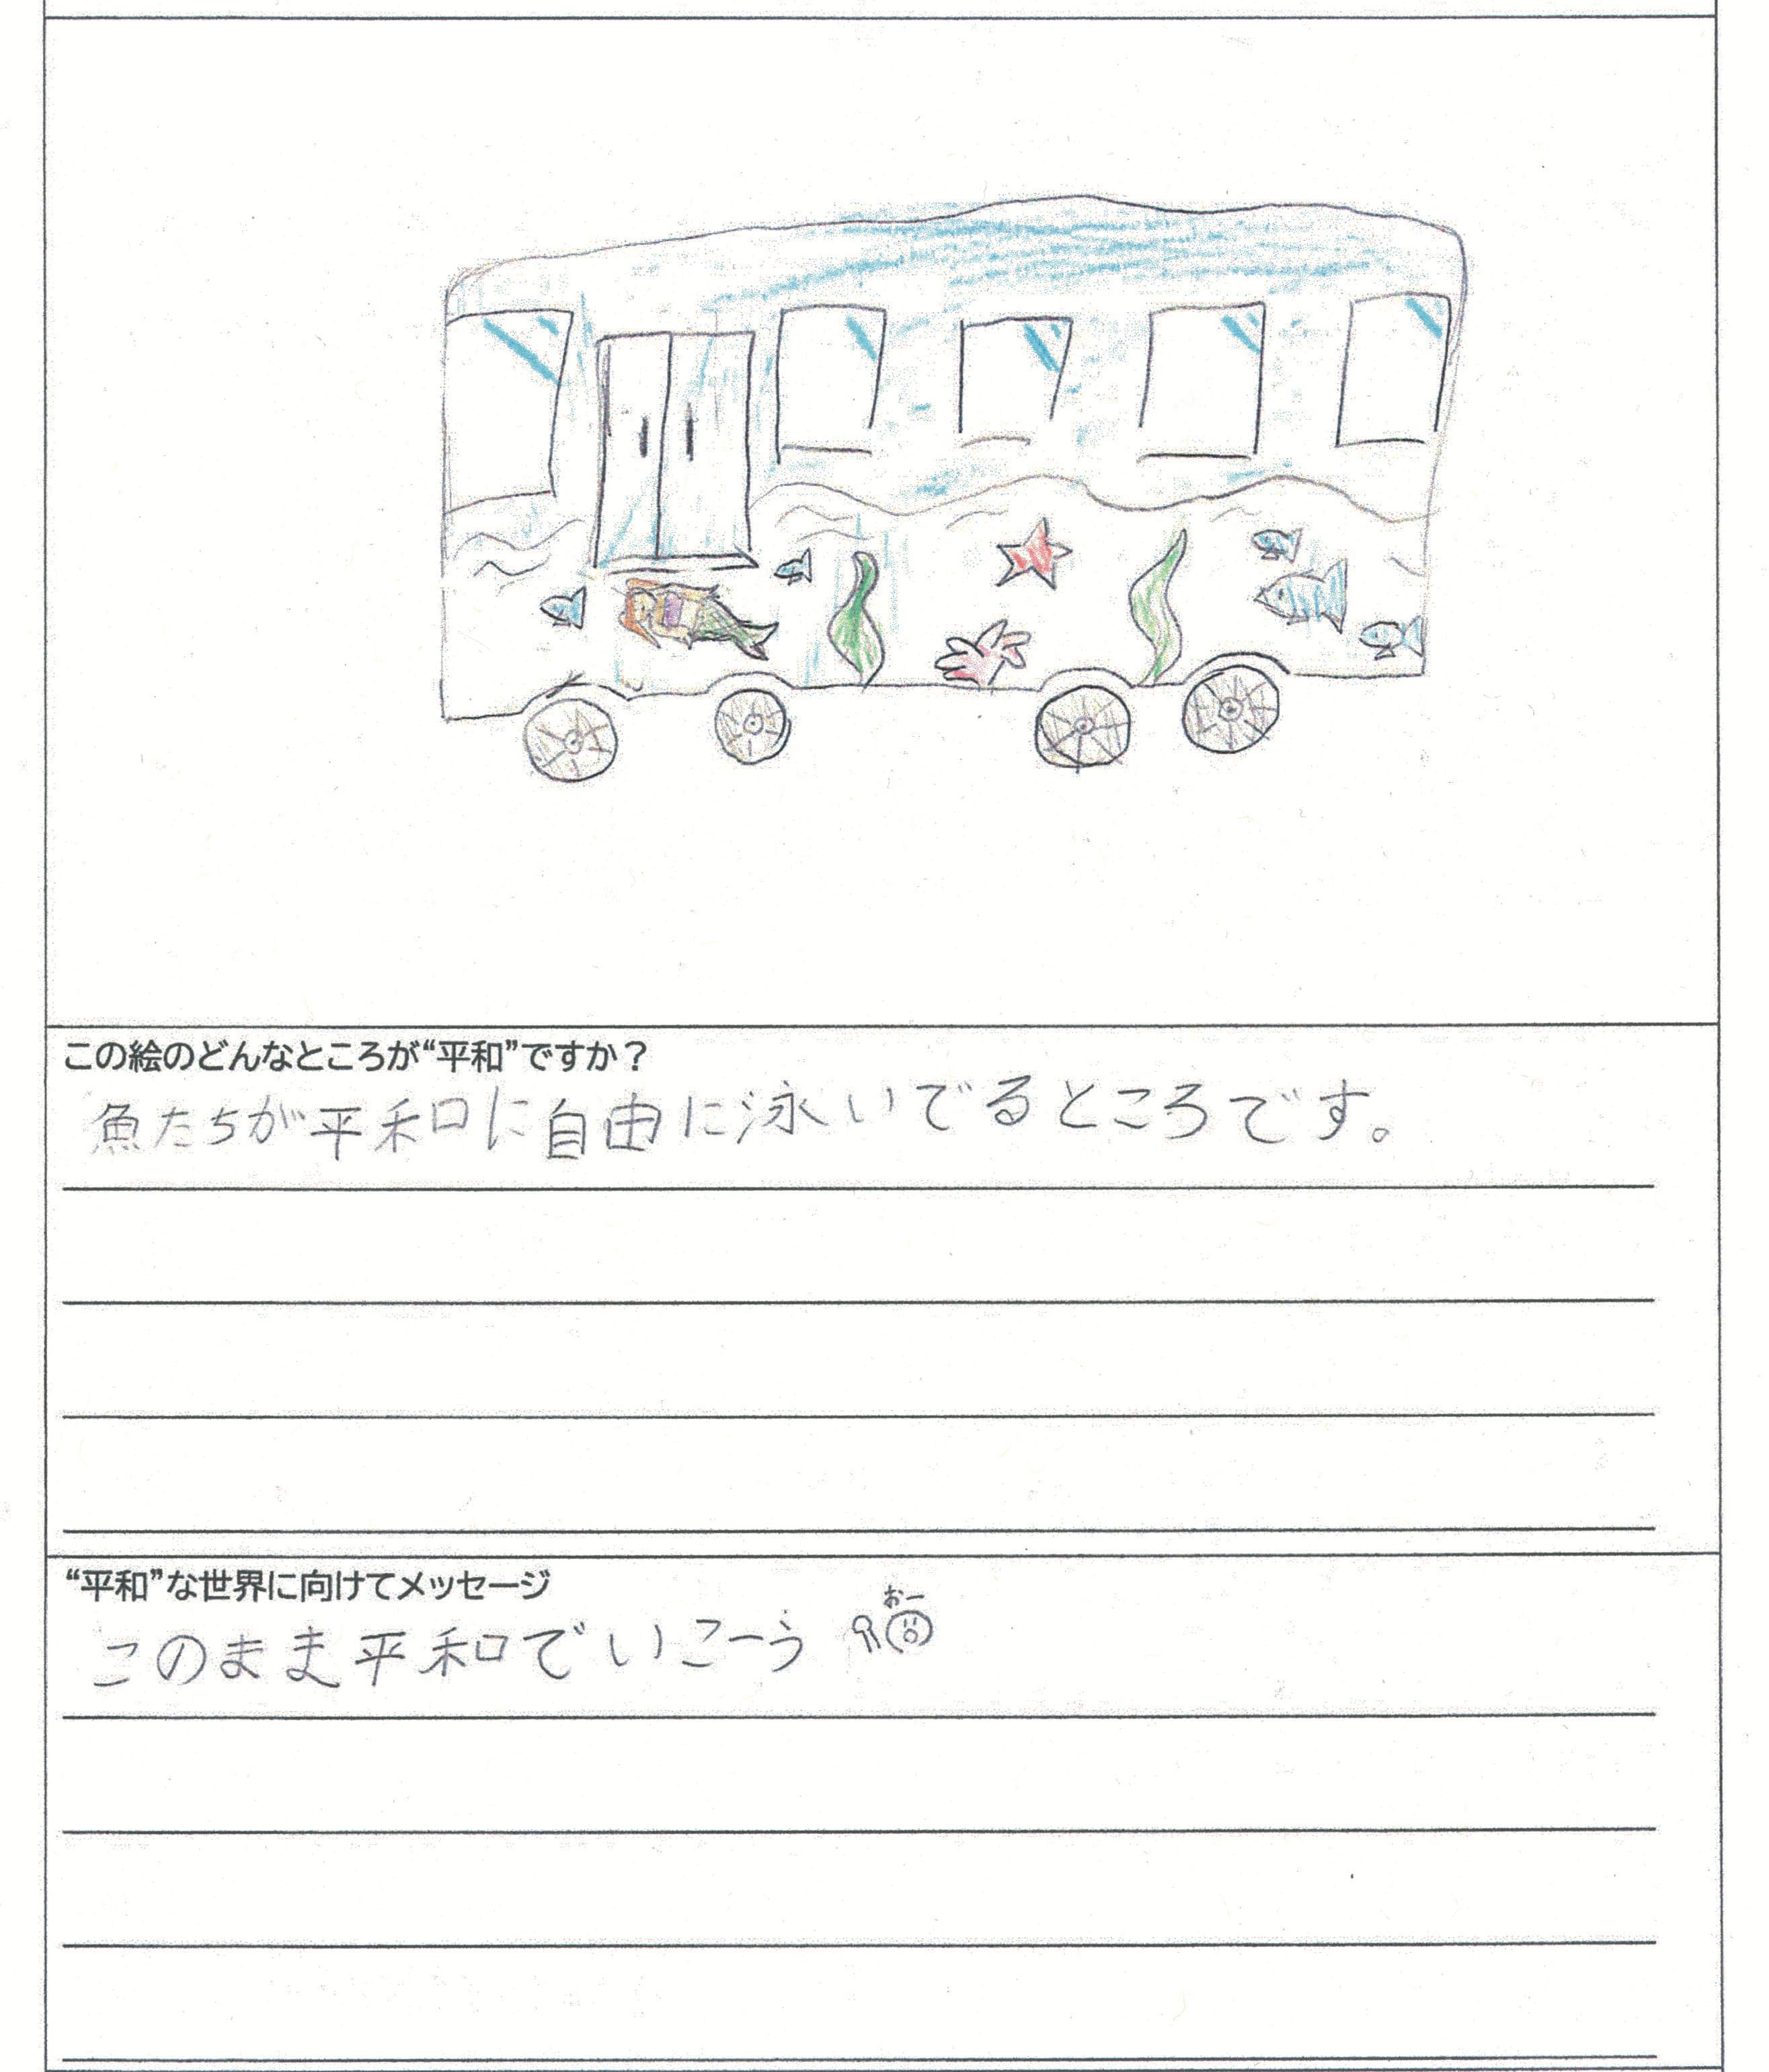 この絵のどんなところが“平和”ですか？
魚たちが平和に自由に泳いでるところです。
“平和”な世界に向けてメッセージ
おー
このまま平和でいこーう